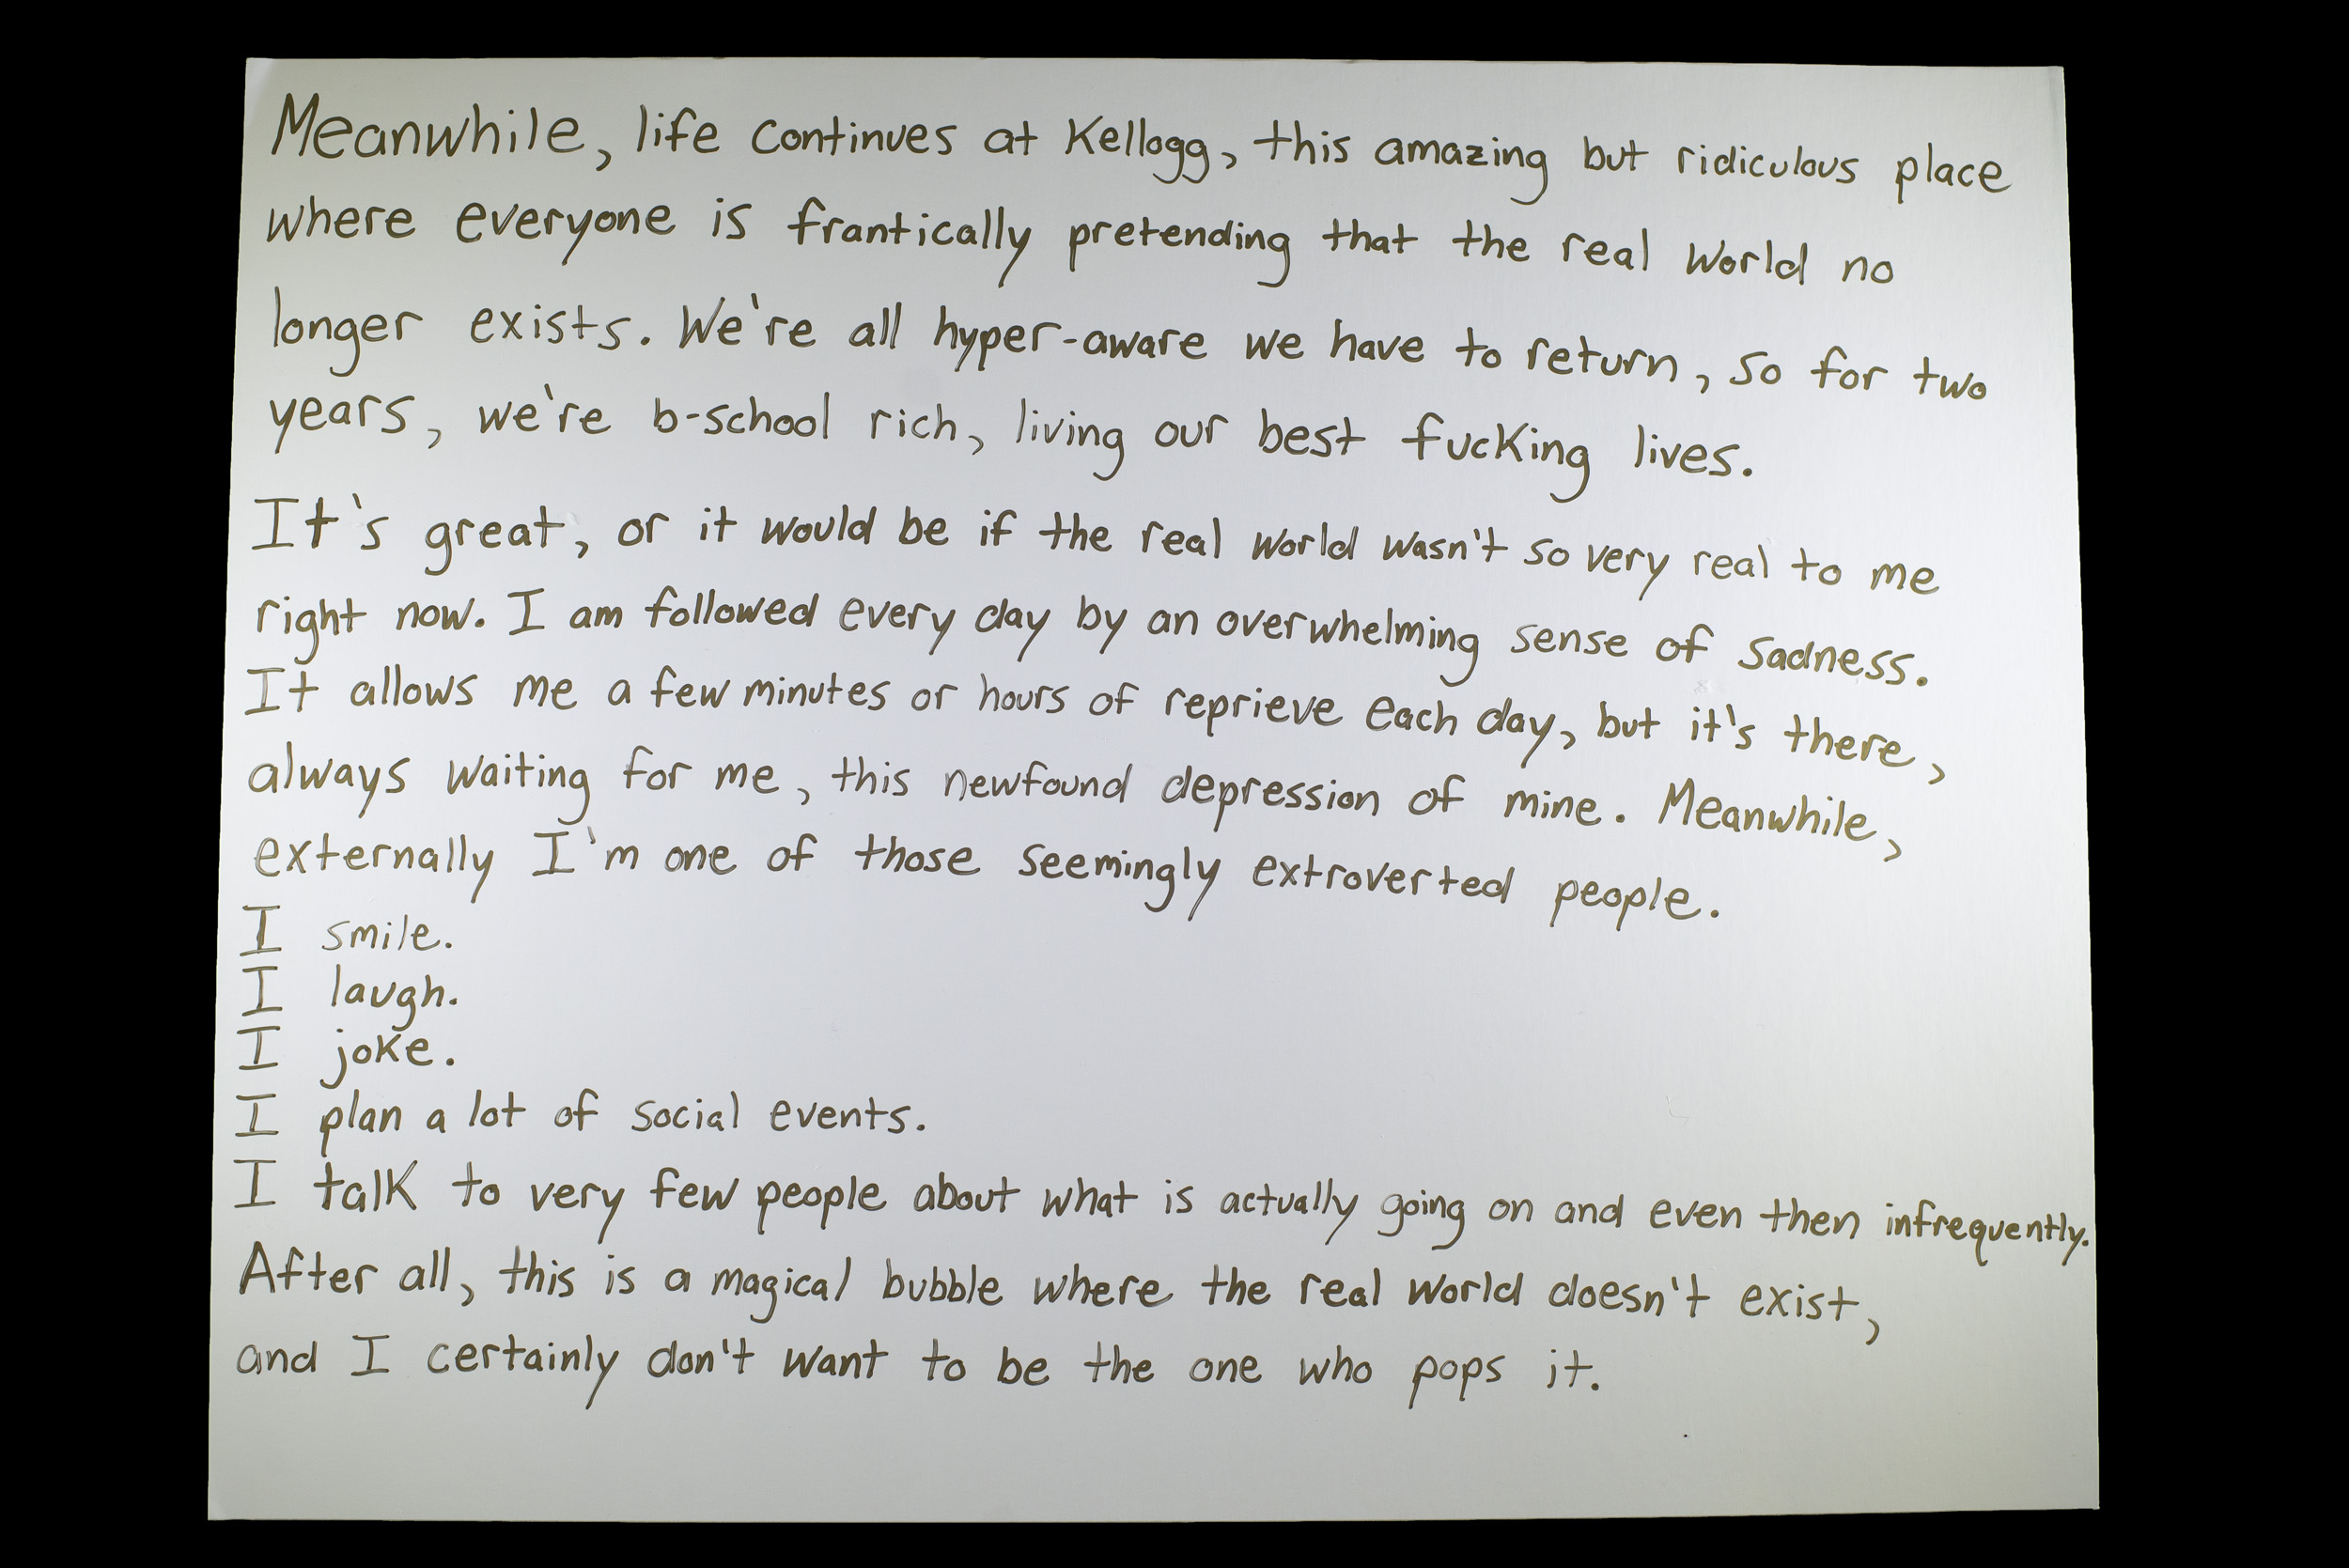 Meanwhile, life continues at Kellogg, this amazing but ridiculous place
where everyone is frantically pretending that the real world no
longer exists. We're all hyper-aware we have to return, so for two
years, we're b-school rich, living our best fucking lives.
It's great, or it would be if the real world wasn't so very real to me
right now. I am followed every day by an overwhelming sense of sadness.
It allows me a few minutes or hours of reprieve each day, but it's there,
always waiting for me, this newfound depression of mine. Meanwhile,
externally I'm one of those seemingly extroverted people.
I smile.
I laugh.
I joke.
I plan a lot of social events.
I talk to very few people about what is actually going on and even then infrequently.
After all, this is a magical bubble where the real world doesn't exist,
and I certainly don't want to be the one who pops it.